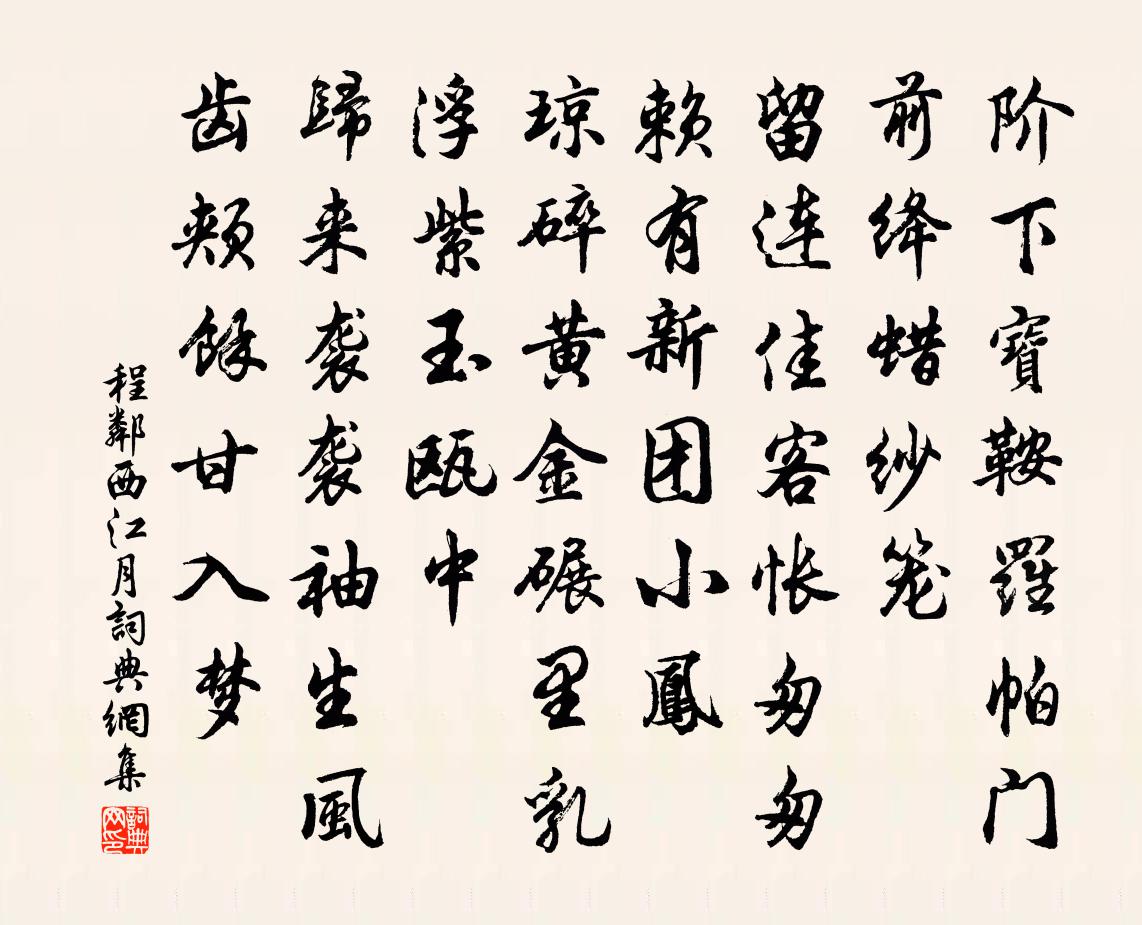 阶下寶鞍羅帕门
前绛蜡纱笼
留连佳客怅匆匆
赖有新团小鳳
琼碎黄金碾里乳
浮紫玉瓯中
歸来袭袭袖生風
齿颊馀甘入梦
程鄰西江月詞典網集
詞典网印